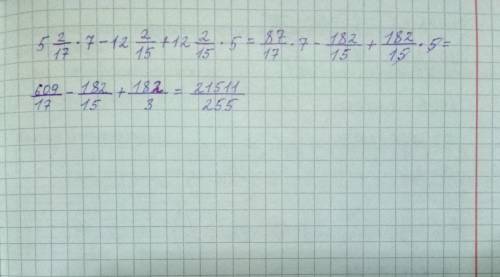 5 2/17 · 7 - 12 2/15 + 12 2/15 · 5 = 87/17 · 7 - 182/15 + 182/15 · 5 =
609/17 - 182/15 + 182/3 = 21511/255